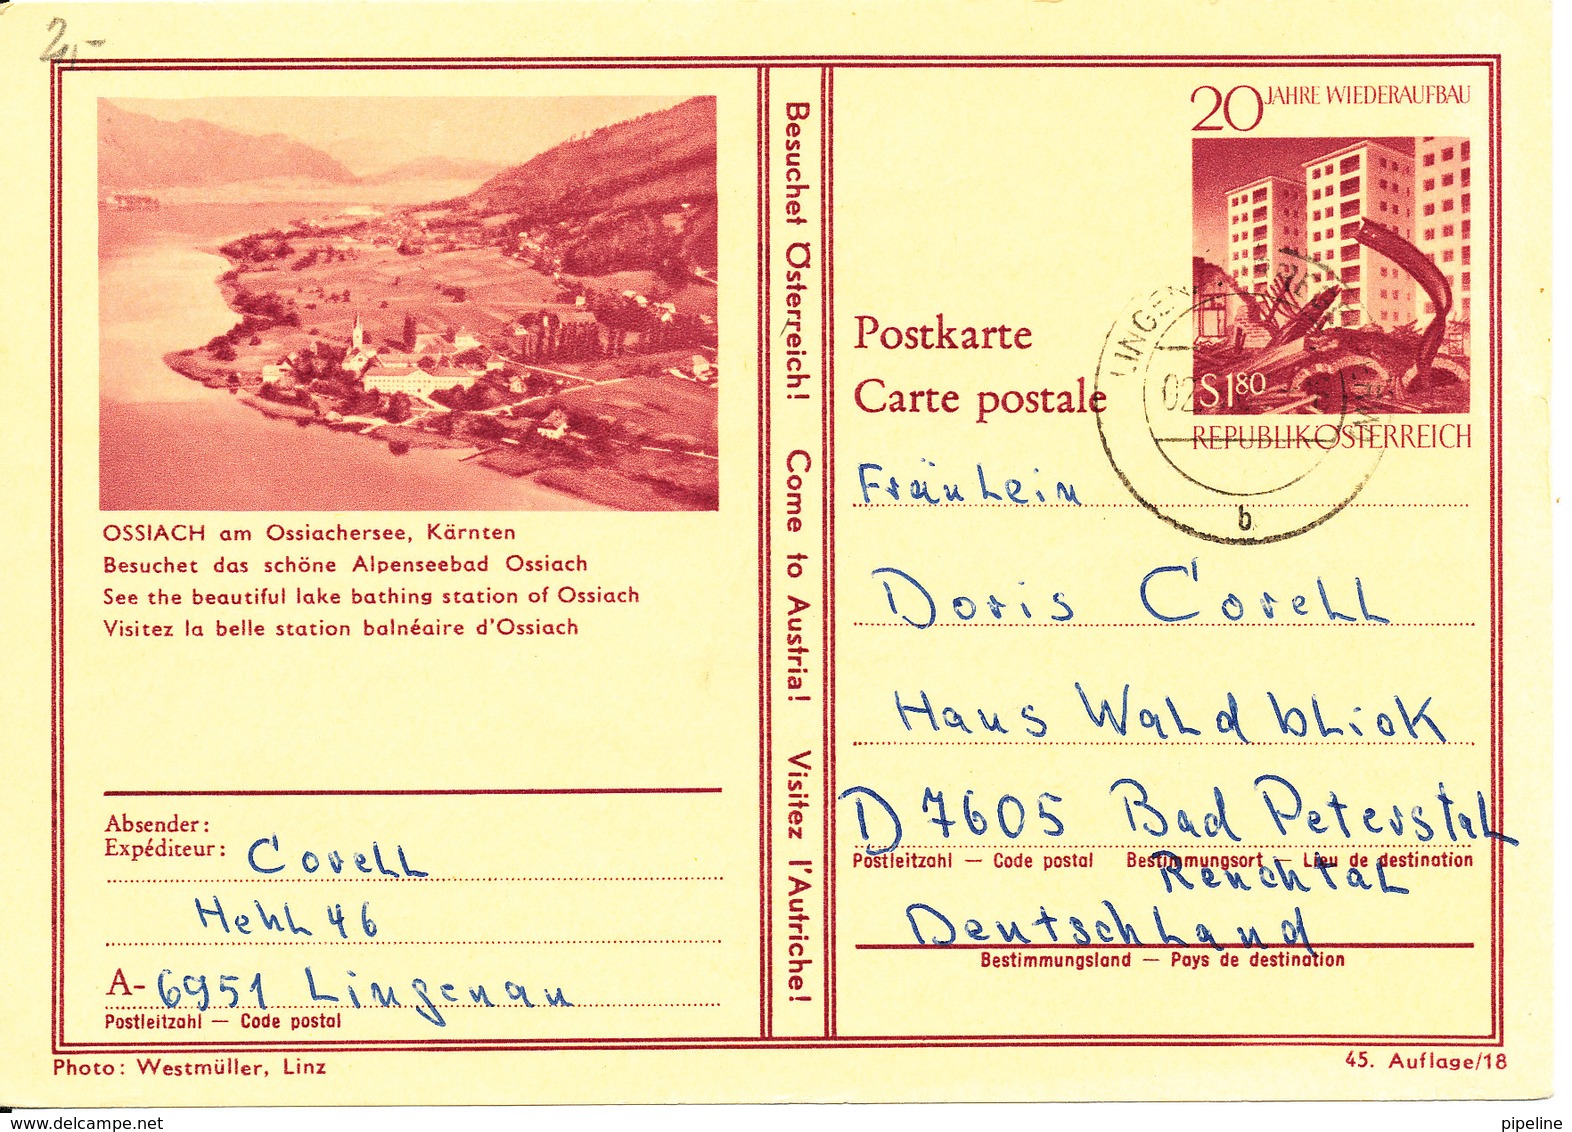 2,-
20 JAHRE WIEDERAUFBAU
S 1.80
REPUBLIK ÖSTERREICH
LINGENAU
02.
b
Postkarte
Carte postale
OSSIACH am Ossiachersee, Kärnten
Besuchet das schöne Alpenseebad Ossiach
See the beautiful lake bathing station of Ossiach
Visitez la belle station balnéaire d'Ossiach
Absender:
Expéditeur: Corell
Hehl 46
A-6951 Lingenau
Postleitzahl — Code postal
Besuchet Österreich! Come to Austria! Visitez l'Autriche!
Fräulein
Doris Corell
Haus Waldblick
D 7605 Bad Peterstal
Postleitzahl — Code postal Bestimmungsort — Lieu de destination
Renchtal
Deutschland
Bestimmungsland — Pays de destination
Photo: Westmüller, Linz
45. Auflage/18
www.delcampe.net
pipeline